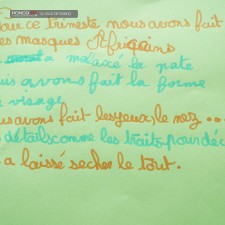 our ce trimestre nous avons fait
es masques Africains
a malaxé la pate
uis avons fait la forme
visage
us avons fait les yeux, le nez ...
s détails comme les traits pour déc
a laissé secher le tout...